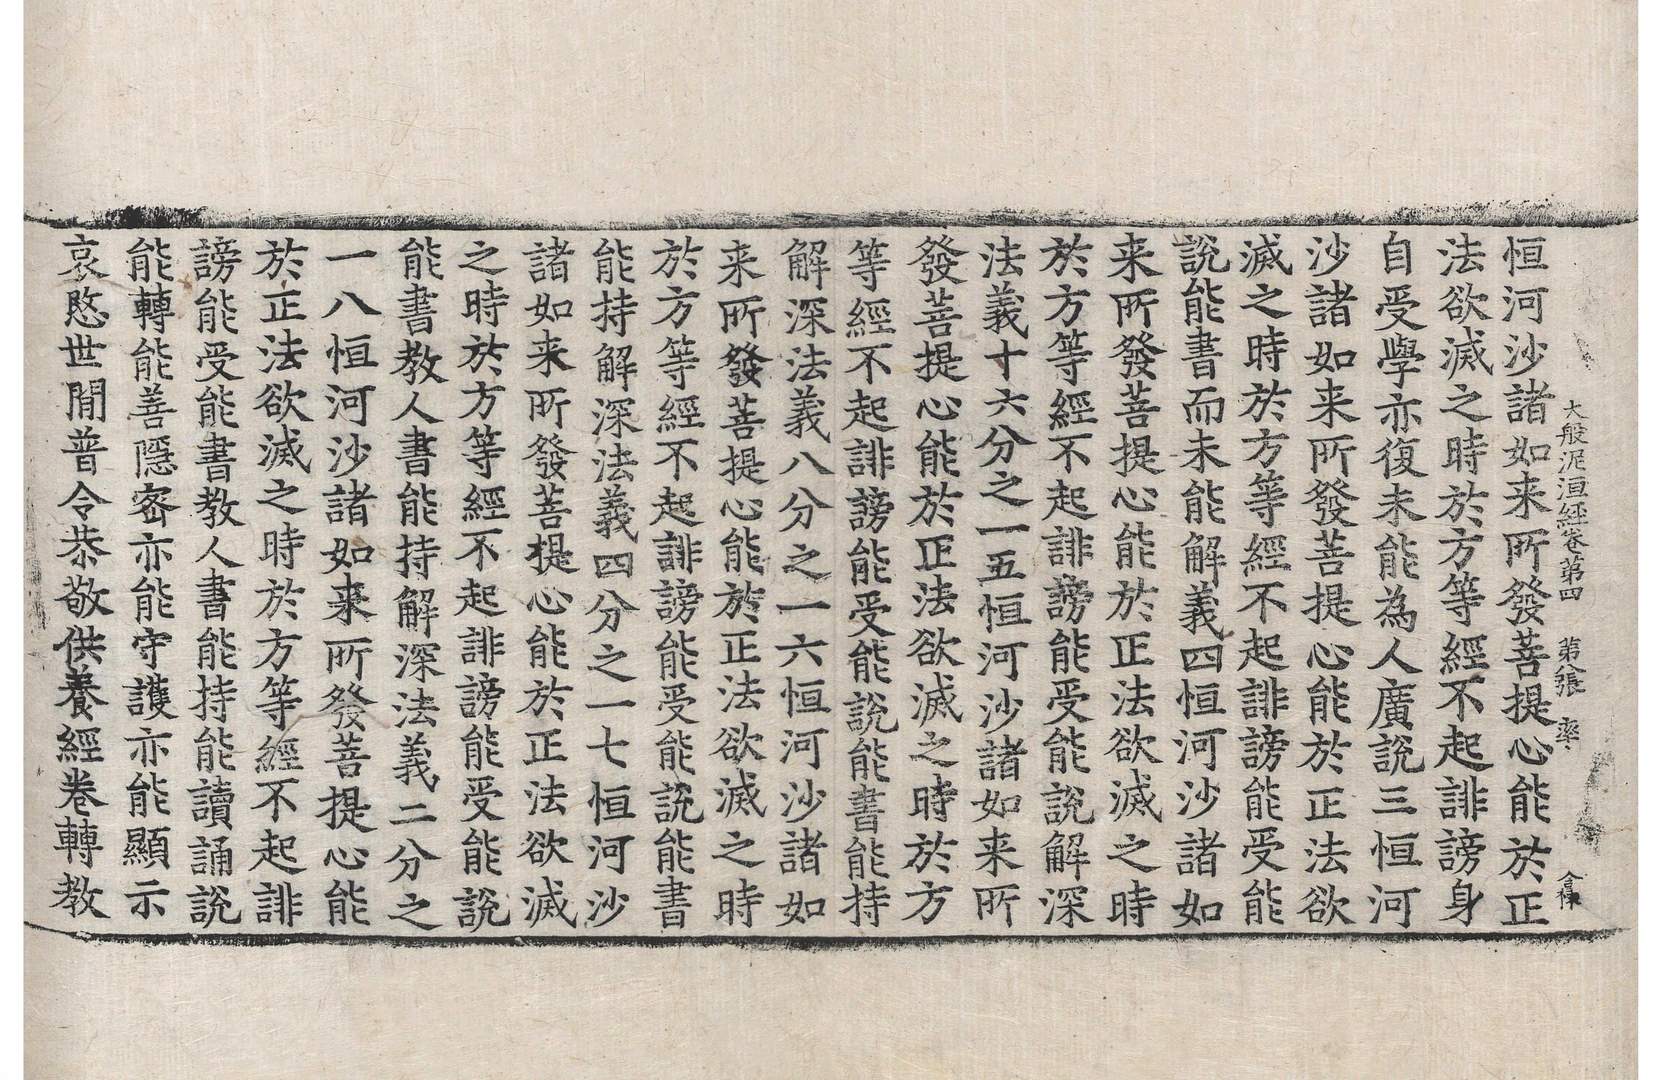 大般泥洹經卷第四　第張　率
恒河沙諸如来所發菩提心能於正
法欲滅之時於方等經不起誹謗身
自受學亦復未能為人廣說三恒河
沙諸如来所發菩提心能於正法欲
滅之時於方等經不起誹謗能受能
說能書而未能解義四恒河沙諸如
来所發菩提心能於正法欲滅之時
於方等經不起誹謗能受能說解深
法義十六分之一五恒河沙諸如来所
發菩提心能於正法欲滅之時於方
等經不起誹謗能受能說能書能持
解深法義八分之一六恒河沙諸如
来所發菩提心能於正法欲滅之時
於方等經不起誹謗能受能說能書
能持解深法義四分之一七恒河沙
諸如来所發菩提心能於正法欲滅
之時於方等經不起誹謗能受能說
能書教人書能持解深法義二分之
一八恒河沙諸如来所發菩提心能
於正法欲滅之時於方等經不起誹
謗能受能書教人書能持能讀誦說
能轉能善隱密亦能守護亦能顯示
哀愍世間普令恭敬供養經卷轉教